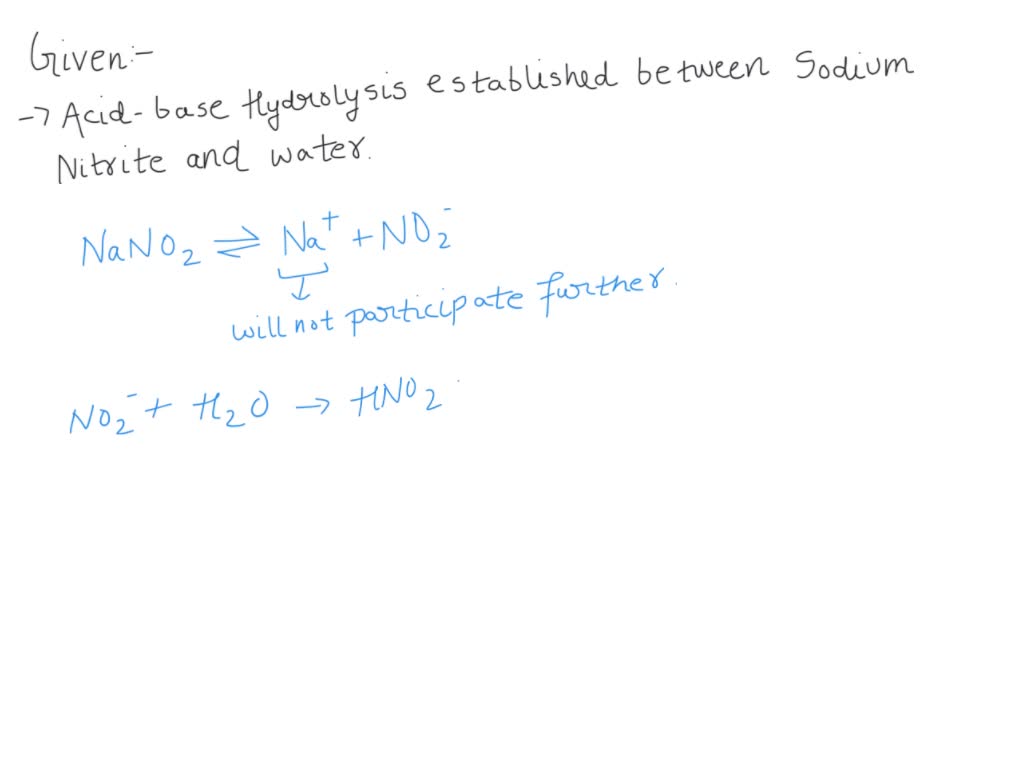 Given:-
→ Acid-base Hydrolysis established between Sodium
Nitrite and water.
NaNO₂ ⇌ Na⁺ + NO₂⁻
↓
will not participate further.
NO₂⁻ + H₂O → HNO₂